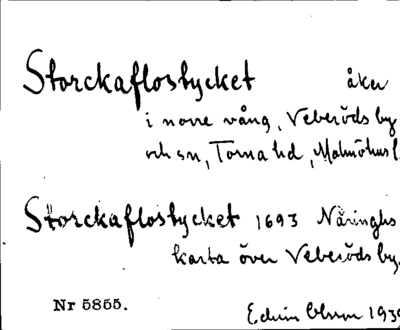 Storckaflostycket åker
i norre vång, Veberöds by
och sn, Torna hd, Malmöhus l.
Storckaflostycket 1693 Näringhs
karta över Veberöds by.
Nr 5855. Edvin Olsson 1930